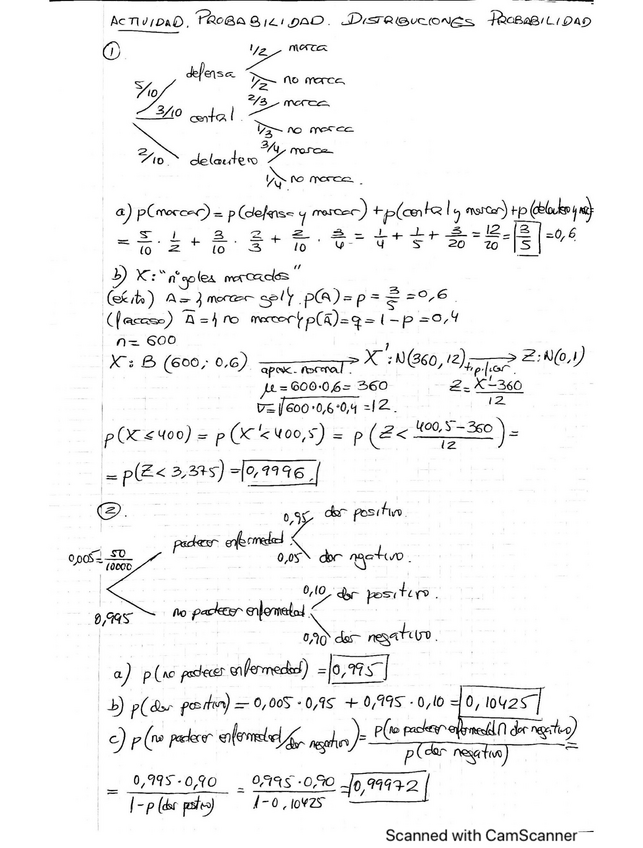 ACTIVIDAD. PROBABILIDAD. DISTRIBUCIONES PROBABILIDAD
①
1/2 marca
defensa
5/10
1/2 no marca
2/3 marca
3/10 cental
1/3 no marca
3/4 marca
2/10 delantero
1/4 no marca.
a) p(marcar) = p(defensa y marcar) + p(cental y marcar) + p(delantero y mar)=
= 5/10 · 1/2 + 3/10 · 2/3 + 2/10 · 3/4 = 1/4 + 1/5 + 3/20 = 12/20 = 3/5 = 0,6
b) X: "nº goles marcados"
(éxito) A = {marcar gol} p(A) = p = 3/5 = 0,6.
(fracaso) Ā = {no marcar} p(Ā) = q = 1 - p = 0,4
n = 600
X: B (600; 0,6) aprox. normal → X': N(360, 12) tipificar → Z: N(0,1)
μ = 600·0,6 = 360 Z = X'-360/12
σ = √600·0,6·0,4 = 12.
p(X ≤ 400) = p(X' < 400,5) = p(Z < 400,5-360/12) =
= p(Z < 3,375) = 0,9996.
②.
0,95 dar positivo.
padecer enfermedad
0,005 = 50/10000
0,05 dar ngativo.
0,10 dar positivo.
0,995 no padecer enfermedad
0,90 dar negativo.
a) p(no padecer enfermedad) = 0,995
b) p(dar positivo) = 0,005·0,95 + 0,995·0,10 = 0,10425
c) p(no padecer enfermedad/dar negativo) = p(no padecer enfermedad ∩ dar negativo)/p(dar negativo) =
= 0,995·0,90/1-p(dar positivo) = 0,995·0,90/1-0,10425 = 0,99972
Scanned with CamScanner